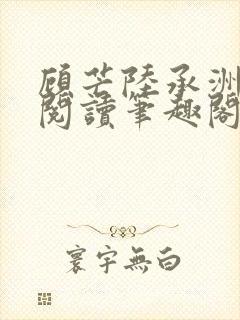 顧芒陸承洲
閱讀筆趣閣
寰宇無白